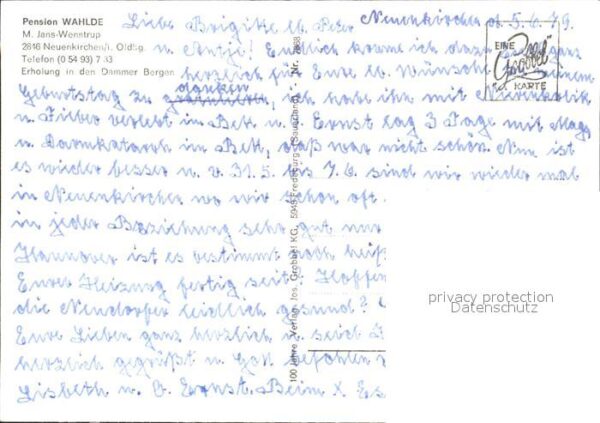 Pension WAHLDE
M. Jans-Wenstrup
2846 Neuenkirchen/i. Oldbg.
Telefon (0 54 93) 7 33
Erholung in den Dammer Bergen
Liebe Brigitte lb. Peter
Neuenkirchen d. 5.6.79.
u. Antje! Endlich komme ich dazu ganz
herzlich für Eure lb. Wünsche zu meinem
danken
Geburtstag zu, ich habe ihn mit Nierenkolik
u. Fieber verlebt im Bett u. Ernst lag 3 Tage mit Mag
u Darmkatarrh im Bett, daß war nicht schön. Nun ist
es wieder besser u. v. 31.5. bis 7.6. sind wir wieder mal
in Neuenkirchen wo wir schon oft
in jeder Beziehung sehr gut
Hannover ist es bestimmt auch heiß
Eurer Heizung fertig seit. Hoffen
die Neudorfer leidlich gesund?
Eure Lieben ganz herzlich u. seid
herzlich gegrüßt u Gott befohlen
Lisbeth u. O. Ernst. Beim X Es
EINE
Grobbel
KARTE
100 Jahre Verlag Jos. Grobbel KG, 5948 Fredeburg (Sauerland) Nr.
privacy protection
Datenschutz